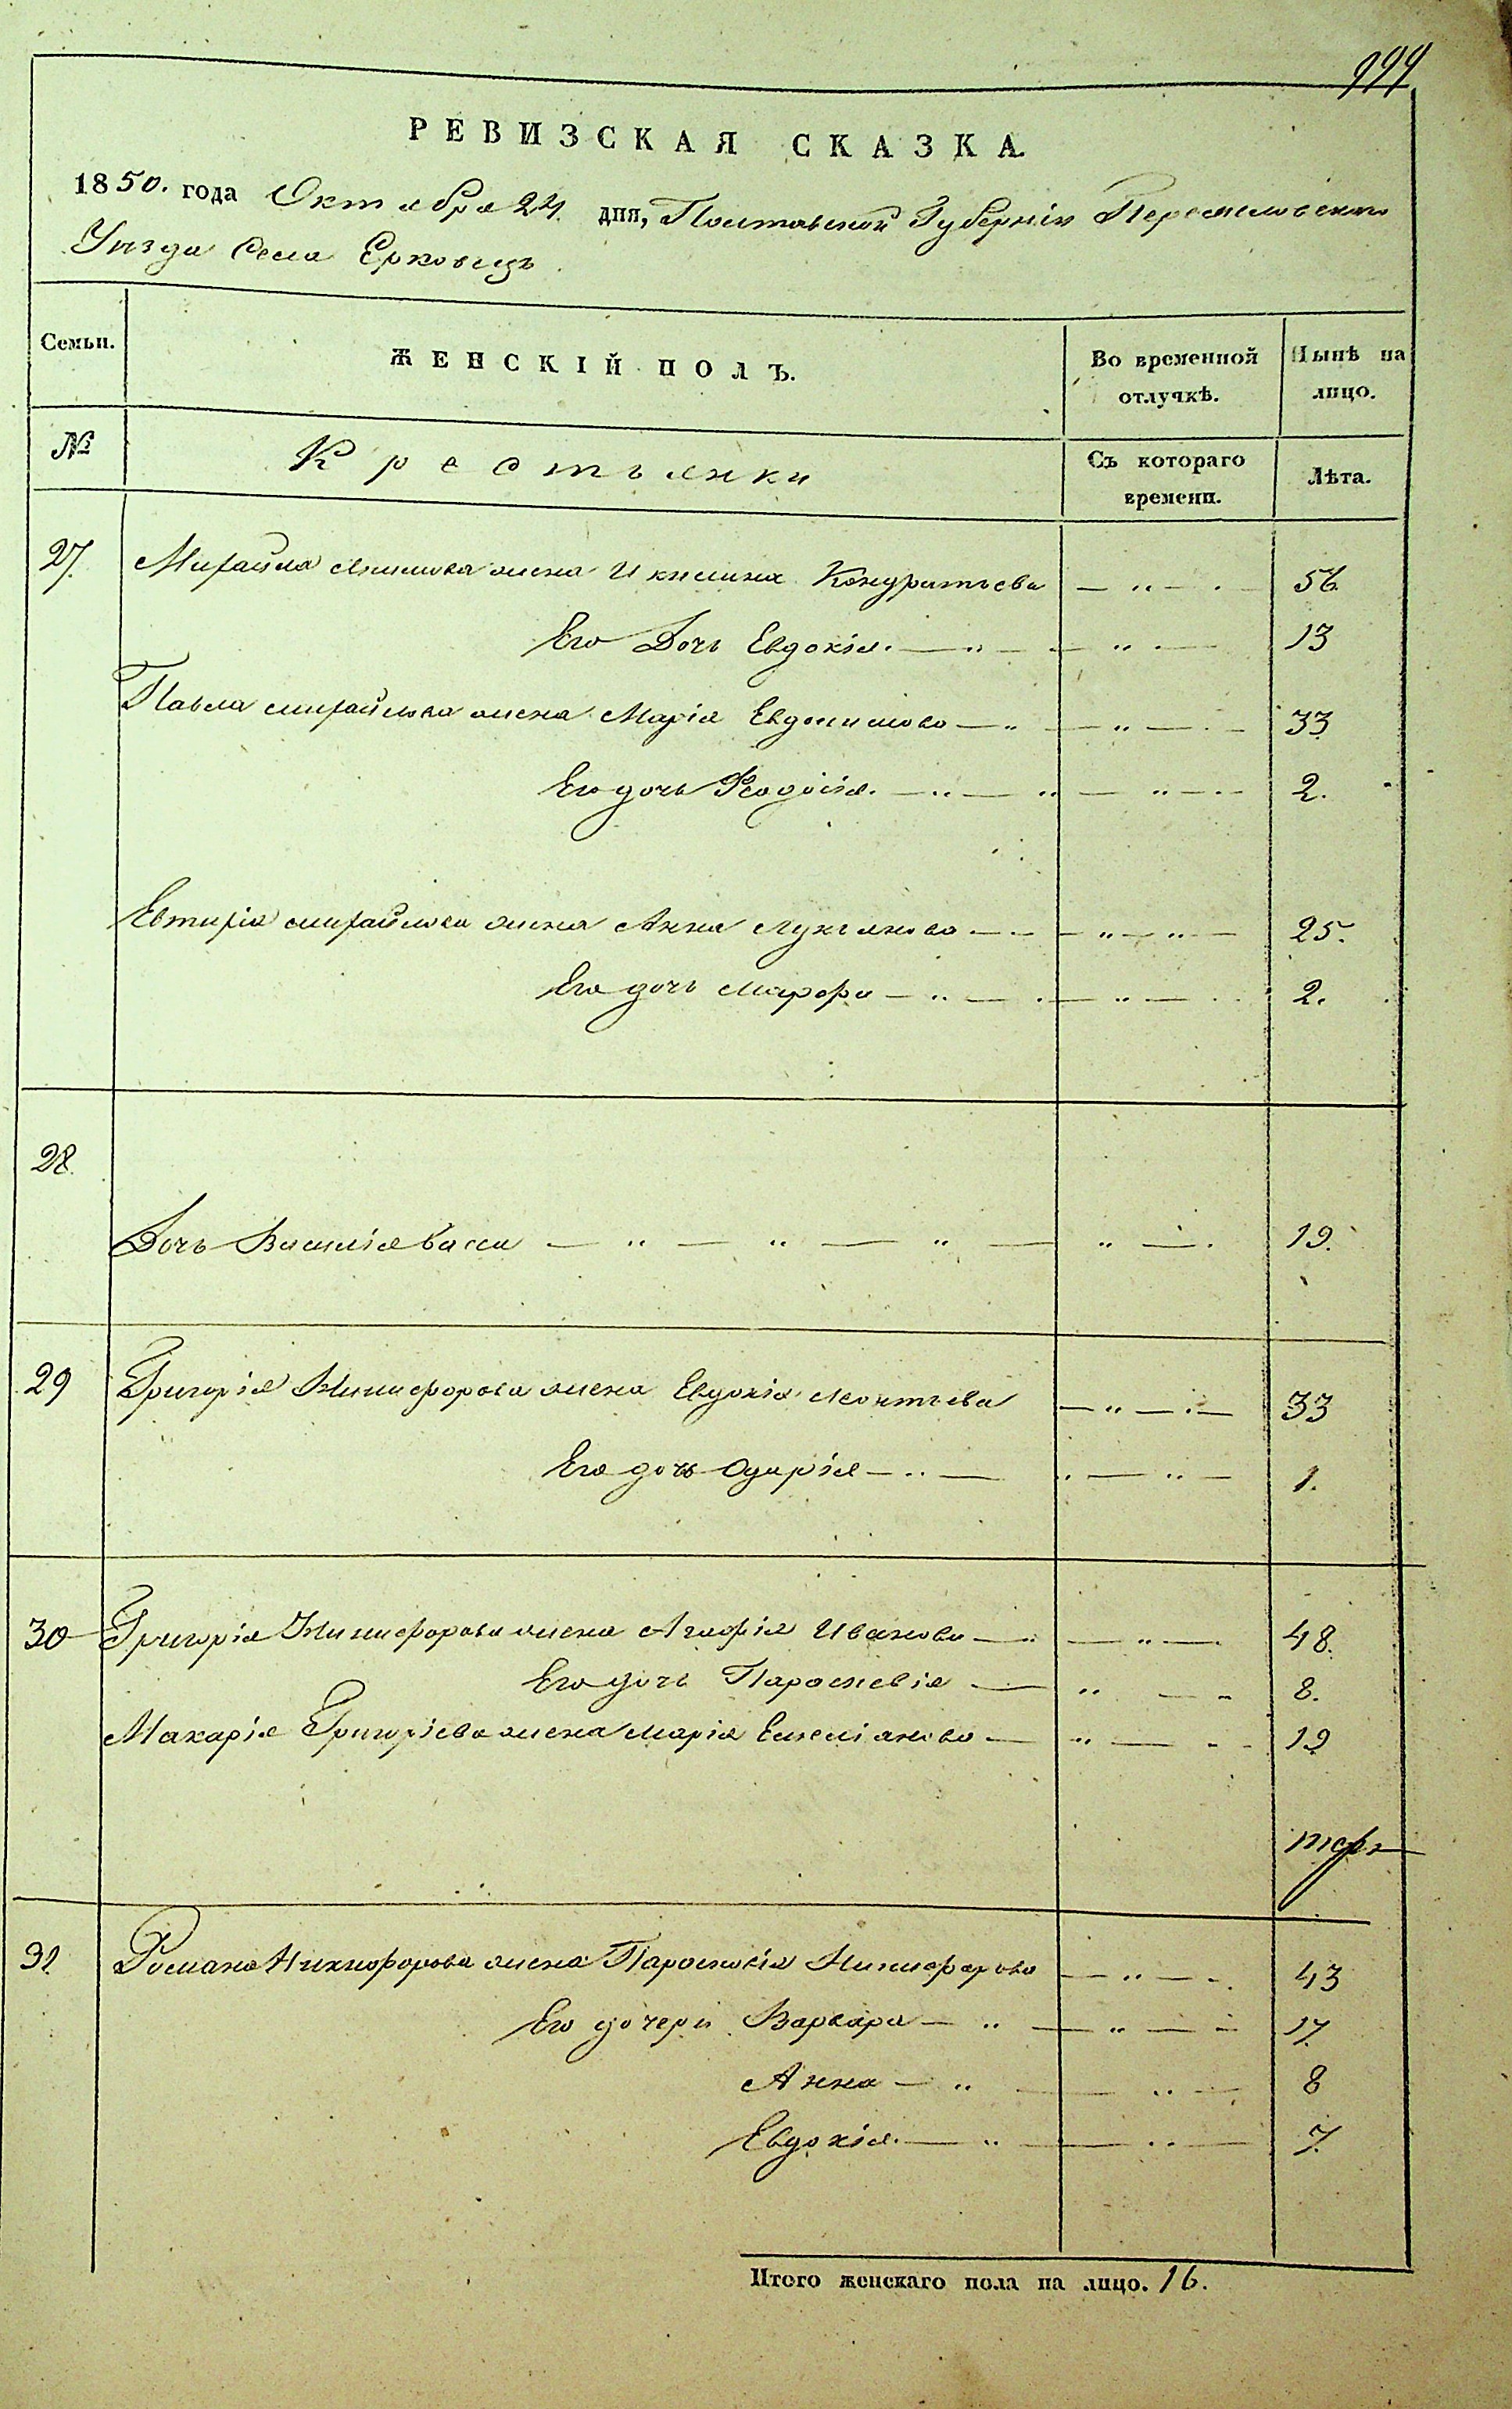 999
РЕВИЗСКАЯ СКАЗКА
1850. года Октября 24. дня, Полтавской Губернiи Переяславскаго
Уѣзда Села Ерковецъ
Семьи. ЖЕНСКIЙ ПОЛЪ. Во временной отлучкѣ. Нынѣ на лицо.
№ Крестьянки Съ котораго времени. Лѣта.
27. Михайла жена Икилина Кондратьева — " — . 56.
Его Дочь Евдокiя. — " — — " . — 13
Павла Михайлова жена Марiя Евдокимова — " — " — . — 33
Его дочь Феодосiя. — " — " — " — . — 2.
Евтихiя Михайлова жена Анна Лукьянова — — — " — " — 25.
Его дочь Марфа — " — . — " — 2.
28.
Дочь Василiя — " — " — " — " — . 19.
29 Григорiя Никифорова жена Евдокiя Леонтьева — " — . — 33
Его дочь Одарiя — " — " — " — 1.
30 Григорiя Никифорова жена Агафiя Иванова — " — " — . 48.
Его дочь Параскевiя — " — – 8.
Макарiя Григорiева жена Марiя Емелiянова — " — - - 19
31. Романа Никифорова жена Параскевiя Никифорова — " — - . 43
Его дочери Варвара — " — " — – 17.
Анна — " — — " — 8
Евдокiя. — " — " — 7.
Итого женскаго пола на лицо. 16.